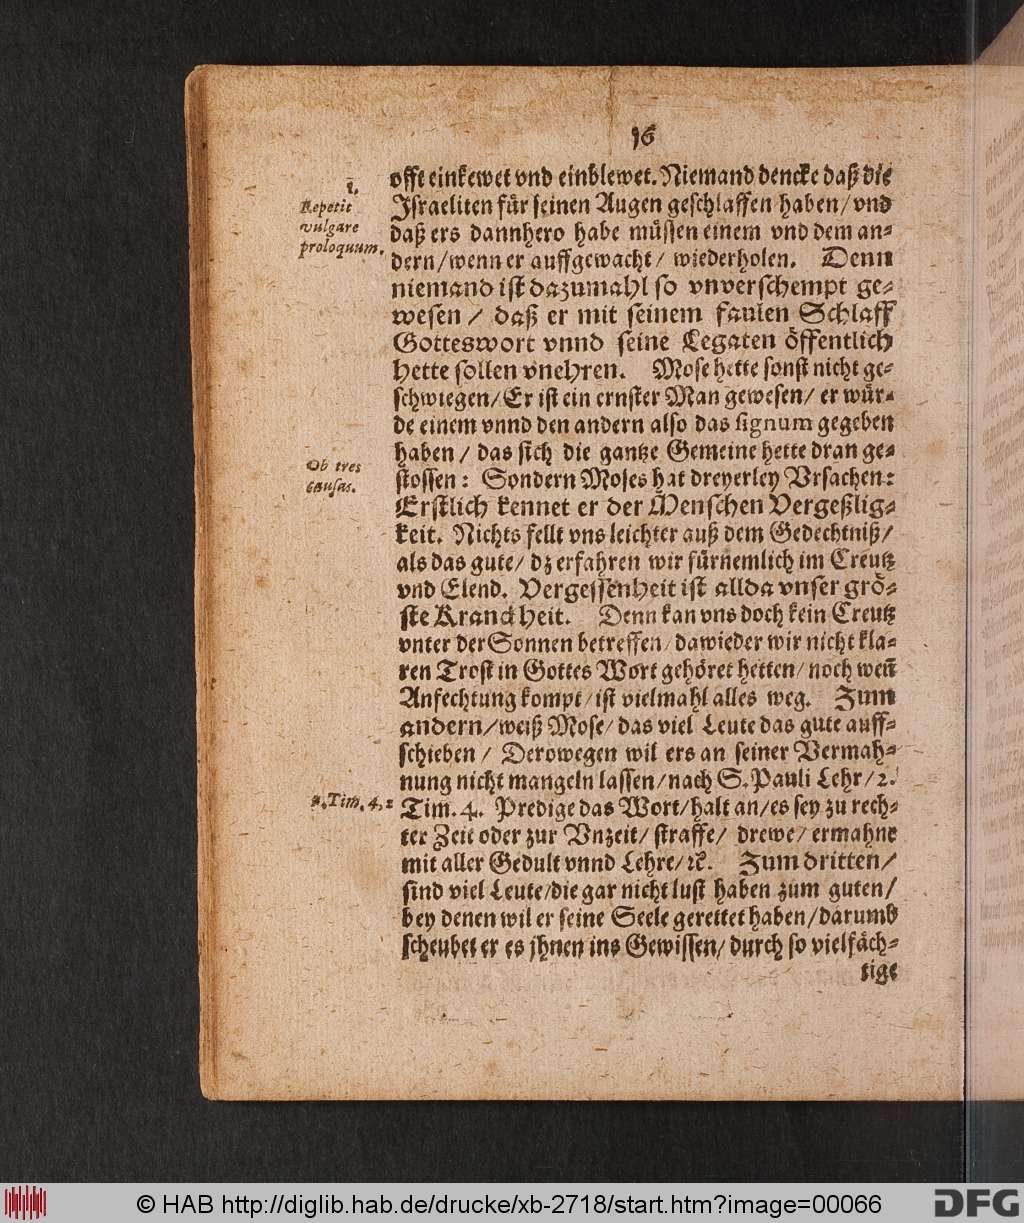 16
offt einkewet vnd einblewet. Niemand dencke daß die
1.
Repetit
vulgare
proloquum.
Jsraeliten für seinen Augen geschlaffen haben/ vnd
daß ers dannhero habe müssen einem vnd dem an-
dern/ wenn er auffgewacht/ wiederholen. Denn
niemand ist dazumahl so vnverschempt ge-
wesen / daß er mit seinem faulen Schlaff
Gotteswort vnnd seine Legaten öffentlich
hette sollen vnehren. Mose hette sonst nicht ge-
schwiegen/ Er ist ein ernster Man gewesen/ er wür-
de einem vnnd den andern also das signum gegeben
haben / das sich die gantze Gemeine hette dran ge-
Ob tres
causas.
stossen: Sondern Moses hat dreyerley Vrsachen:
Erstlich kennet er der Menschen Vergeßlig-
keit. Nichts fellt vns leichter auß dem Gedechtniß/
als das gute/ dz erfahren wir fürnemlich im Creutz
vnd Elend. Vergessenheit ist allda vnser grö-
ste Kranckheit. Denn kan vns doch kein Creutz
vnter der Sonnen betreffen/ dawieder wir nicht kla-
ren Trost in Gottes Wort gehöret hetten/ noch weñ
Anfechtung kompt/ ist vielmahl alles weg. Zum
andern/ weiß Mose/ das viel Leute das gute auff-
schieben / Derowegen wil ers an seiner Vermah-
nung nicht mangeln lassen/ nach S. Pauli Lehr/ 2.
2. Tim. 4, 2
Tim. 4. Predige das Wort/ halt an/ es sey zu rech-
ter Zeit oder zur Vnzeit/ straffe/ drewe/ ermahne
mit aller Gedult vnnd Lehre/ ꝛc. Zum dritten/
sind viel Leute/ die gar nicht lust haben zum guten/
bey denen wil er seine Seele gerettet haben/ darumb
scheubet er es jhnen ins Gewissen/ durch so vielfäch-
tige
© HAB http://diglib.hab.de/drucke/xb-2718/start.htm?image=00066
DFG